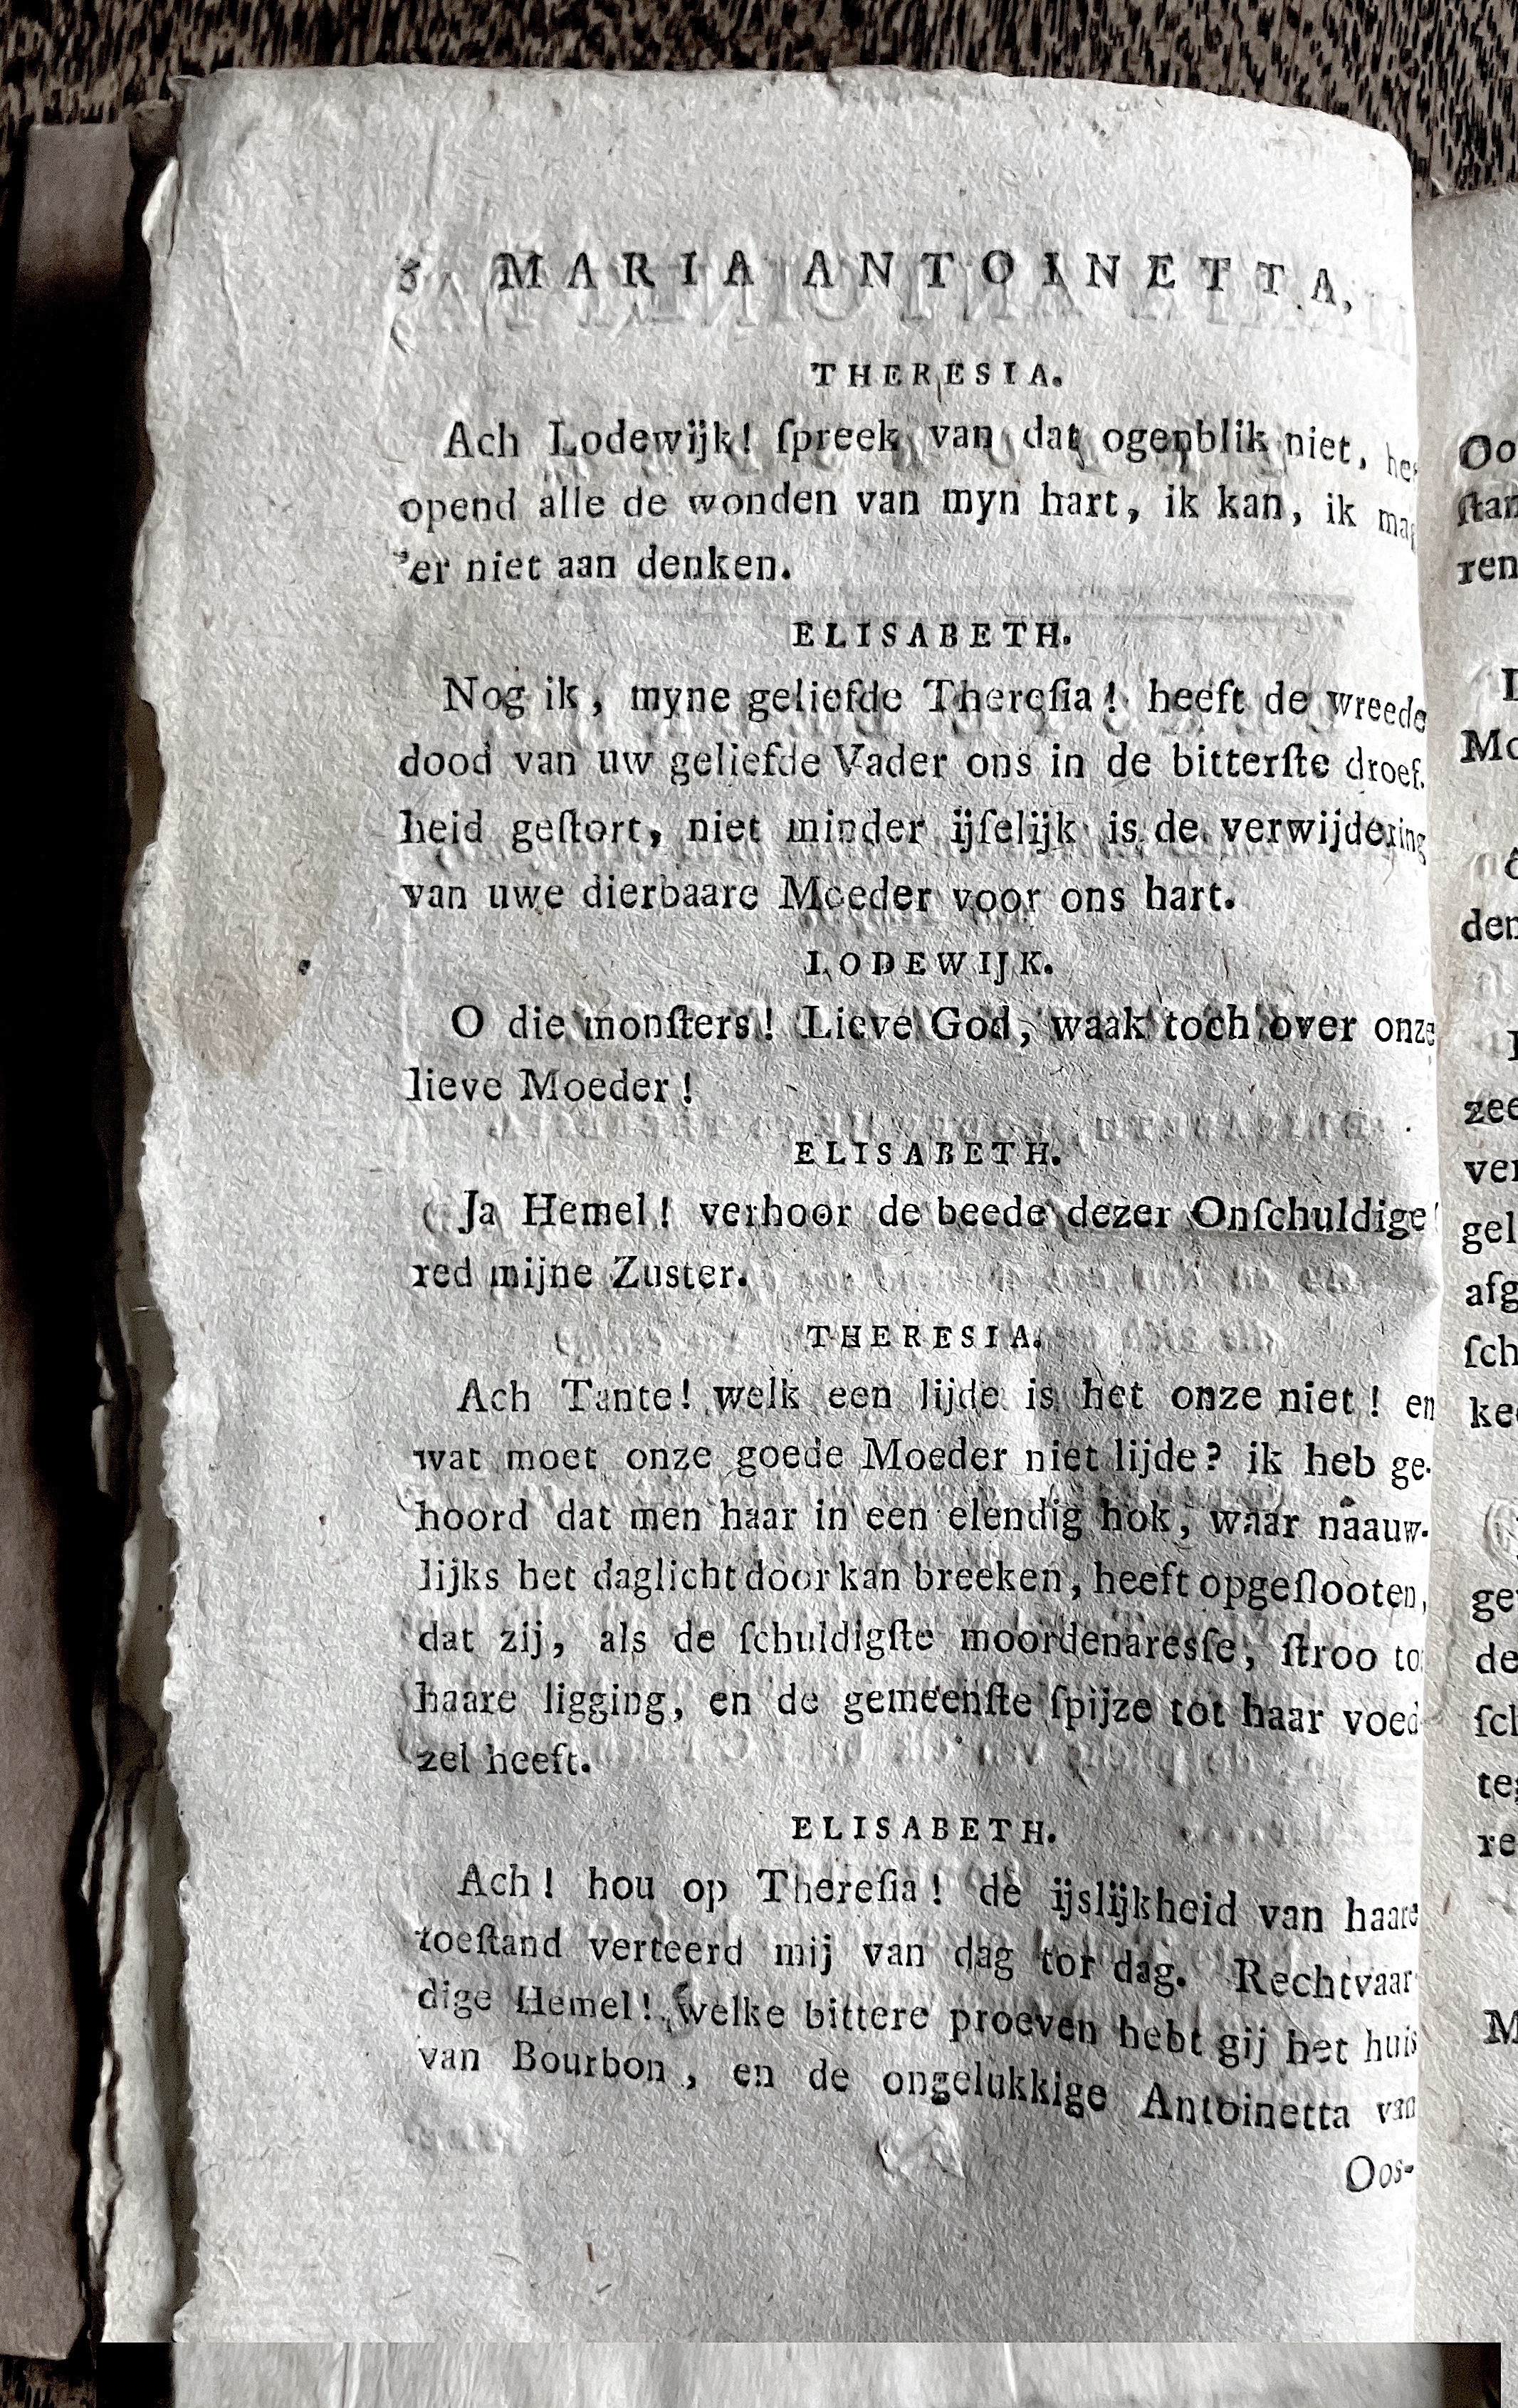 MARIA ANTOINETTA,
THERESIA.
Ach Lodewijk! ſpreek van dat ogenblik niet,
opend alle de wonden van myn hart, ik kan, ik
'er niet aan denken.
ELISABETH.
Nog ik, myne geliefde Thereſia! heeft de wreede
dood van uw geliefde Vader ons in de bitterſte droef-
heid geſtort, niet minder ijſelijk is de verwijdering
van uwe dierbaare Moeder voor ons hart.
LODEWIJK.
O die monſters! Lieve God, waak toch over onze
lieve Moeder!
ELISABETH.
Ja Hemel! verhoor de beede dezer Onſchuldige!
red mijne Zuster.
THERESIA.
Ach Tante! welk een lijde is het onze niet! en
wat moet onze goede Moeder niet lijde? ik heb ge-
hoord dat men haar in een elendig hok, waar naauw-
lijks het daglicht door kan breeken, heeft opgeſlooten,
dat zij, als de ſchuldigſte moordenaresſe, ſtroo
haare ligging, en de gemeenſte ſpijze tot haar voed-
zel heeft.
ELISABETH.
Ach! hou op Thereſia! de ijslijkheid van haare
toeſtand verteerd mij van dag tot dag. Rechtvaar-
dige Hemel! welke bittere proeven hebt gij het huis
van Bourbon, en de ongelukkige Antoinetta van
Oos-
Oo
ſtan
ren
Mo
den
zee
ver
gel
afg
ſch
kee
ge
de
ſch
te
re
M